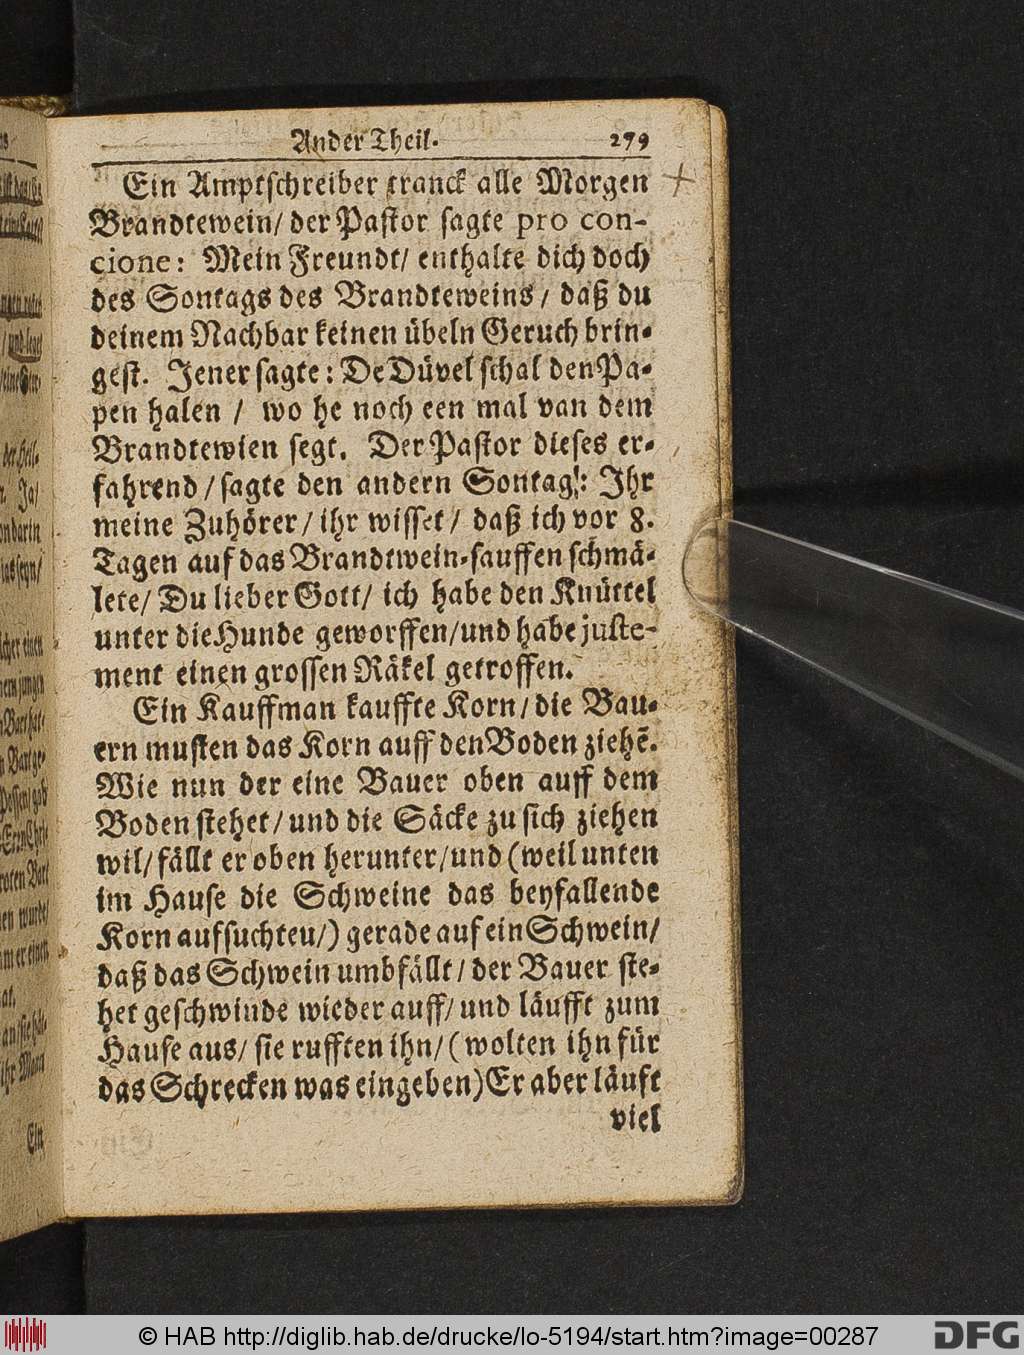 Ander Theil. 279
Ein Amptschreiber tranck alle Morgen
Brandtewein/ der Pastor sagte pro con-
cione: Mein Freundt/ enthalte dich doch
des Sontags des Brandteweins/ daß du
deinem Nachbar keinen übeln Geruch brin-
gest. Jener sagte: De Düvel schal den Pa-
pen halen / wo he noch een mal van dem
Brandtewien segt. Der Pastor dieses er-
fahrend/ sagte den andern Sontag: Ihr
meine Zuhörer/ ihr wisset/ daß ich vor 8.
Tagen auf das Brandtwein-sauffen schmä-
lete/ Du lieber Gott/ ich habe den Knüttel
unter die Hunde geworffen/ und habe juste-
ment einen grossen Räkel getroffen.
Ein Kauffman kauffte Korn/ die Bau-
ern musten das Korn auff den Boden ziehẽ.
Wie nun der eine Bauer oben auff dem
Boden stehet/ und die Säcke zu sich ziehen
wil/ fällt er oben herunter/ und (weil unten
im Hause die Schweine das beyfallende
Korn aufsuchteu/) gerade auf ein Schwein/
daß das Schwein umbfällt/ der Bauer ste-
het geschwinde wieder auff/ und läufft zum
Hause aus/ sie rufften ihn/ (wolten ihn für
das Schrecken was eingeben) Er aber läuft
viel
© HAB http://diglib.hab.de/drucke/lo-5194/start.htm?image=00287
DFG